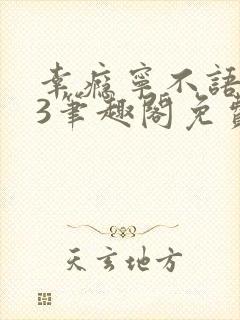 幸瘾宁不語
3筆趣閣免費
天玄地方